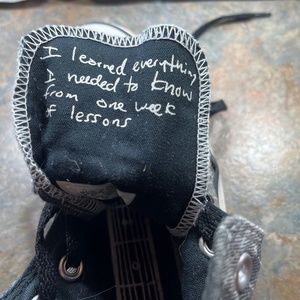 I learned everything
I needed to know
from one week
of lessons